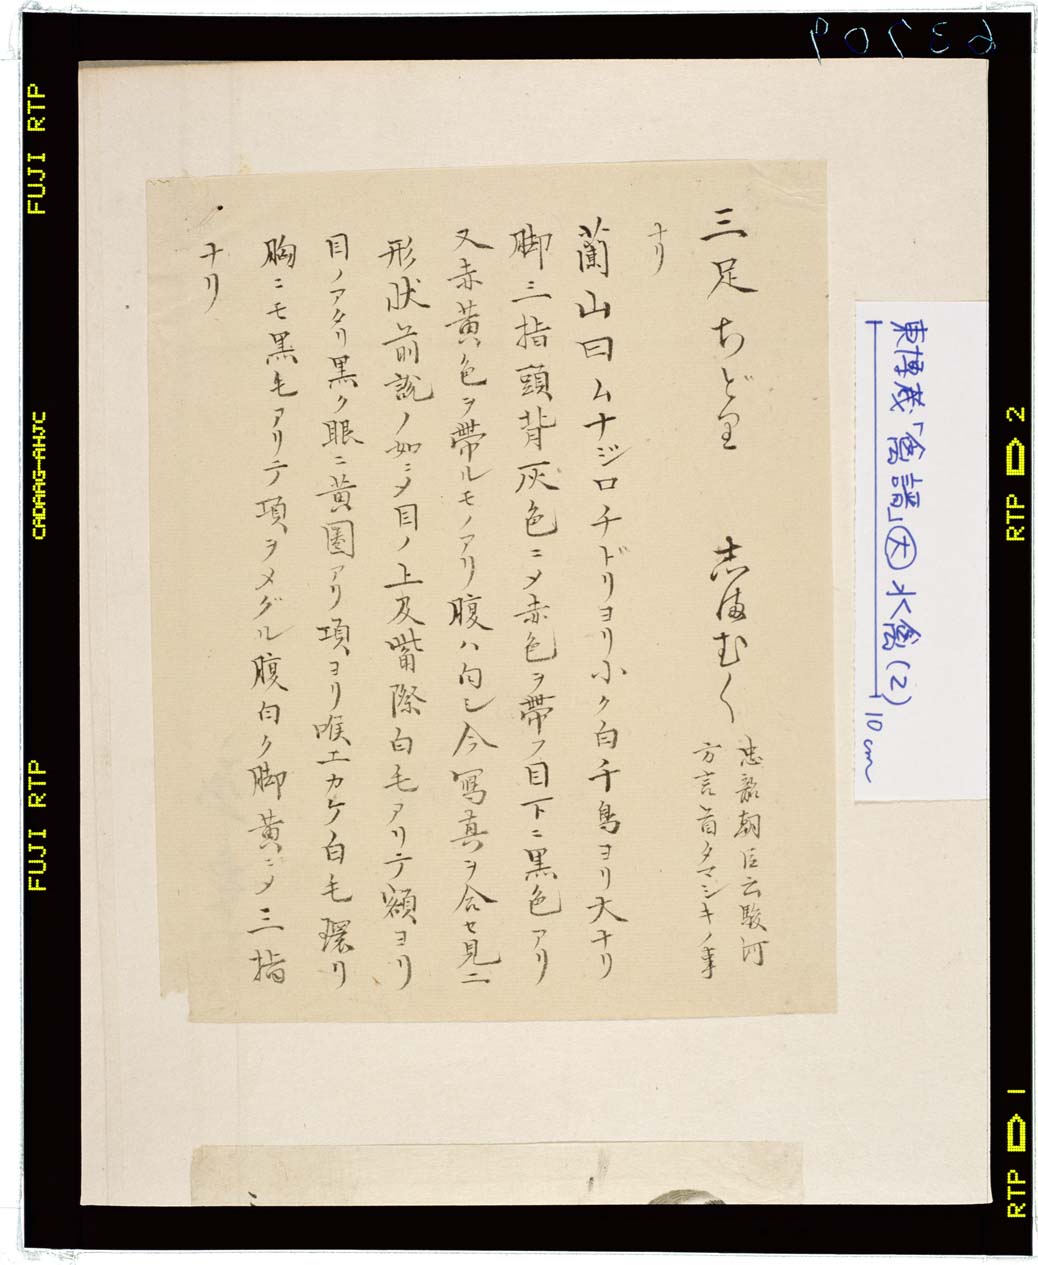 三足ちどり　志まむく　忠韶朝臣云駿河
方言首タマシキノ事
ナリ
蘭山曰ムナジロチドリヨリ小ク白千鳥ヨリ大ナリ
脚三指頭背灰色ニメ赤色ヲ帯フ目下ニ黒色アリ
又赤黄色ヲ帯ルモノアリ腹ハ白シ今写真ヲ合セ見ニ
形状前説ノ如ニメ目ノ上及嘴際白毛アリテ額ヨリ
目ノアタリ黒ク眼ニ黄圏アリ項ヨリ喉エカケ白毛環リ
胸ニモ黒毛アリテ項ヲメグル腹白ク脚黄ニメ三指
ナリ
東博蔵「禽譜」大 水禽(2)
10cm
63709
FUJI RTP
FUJI RTP
RTP 2
RTP 1